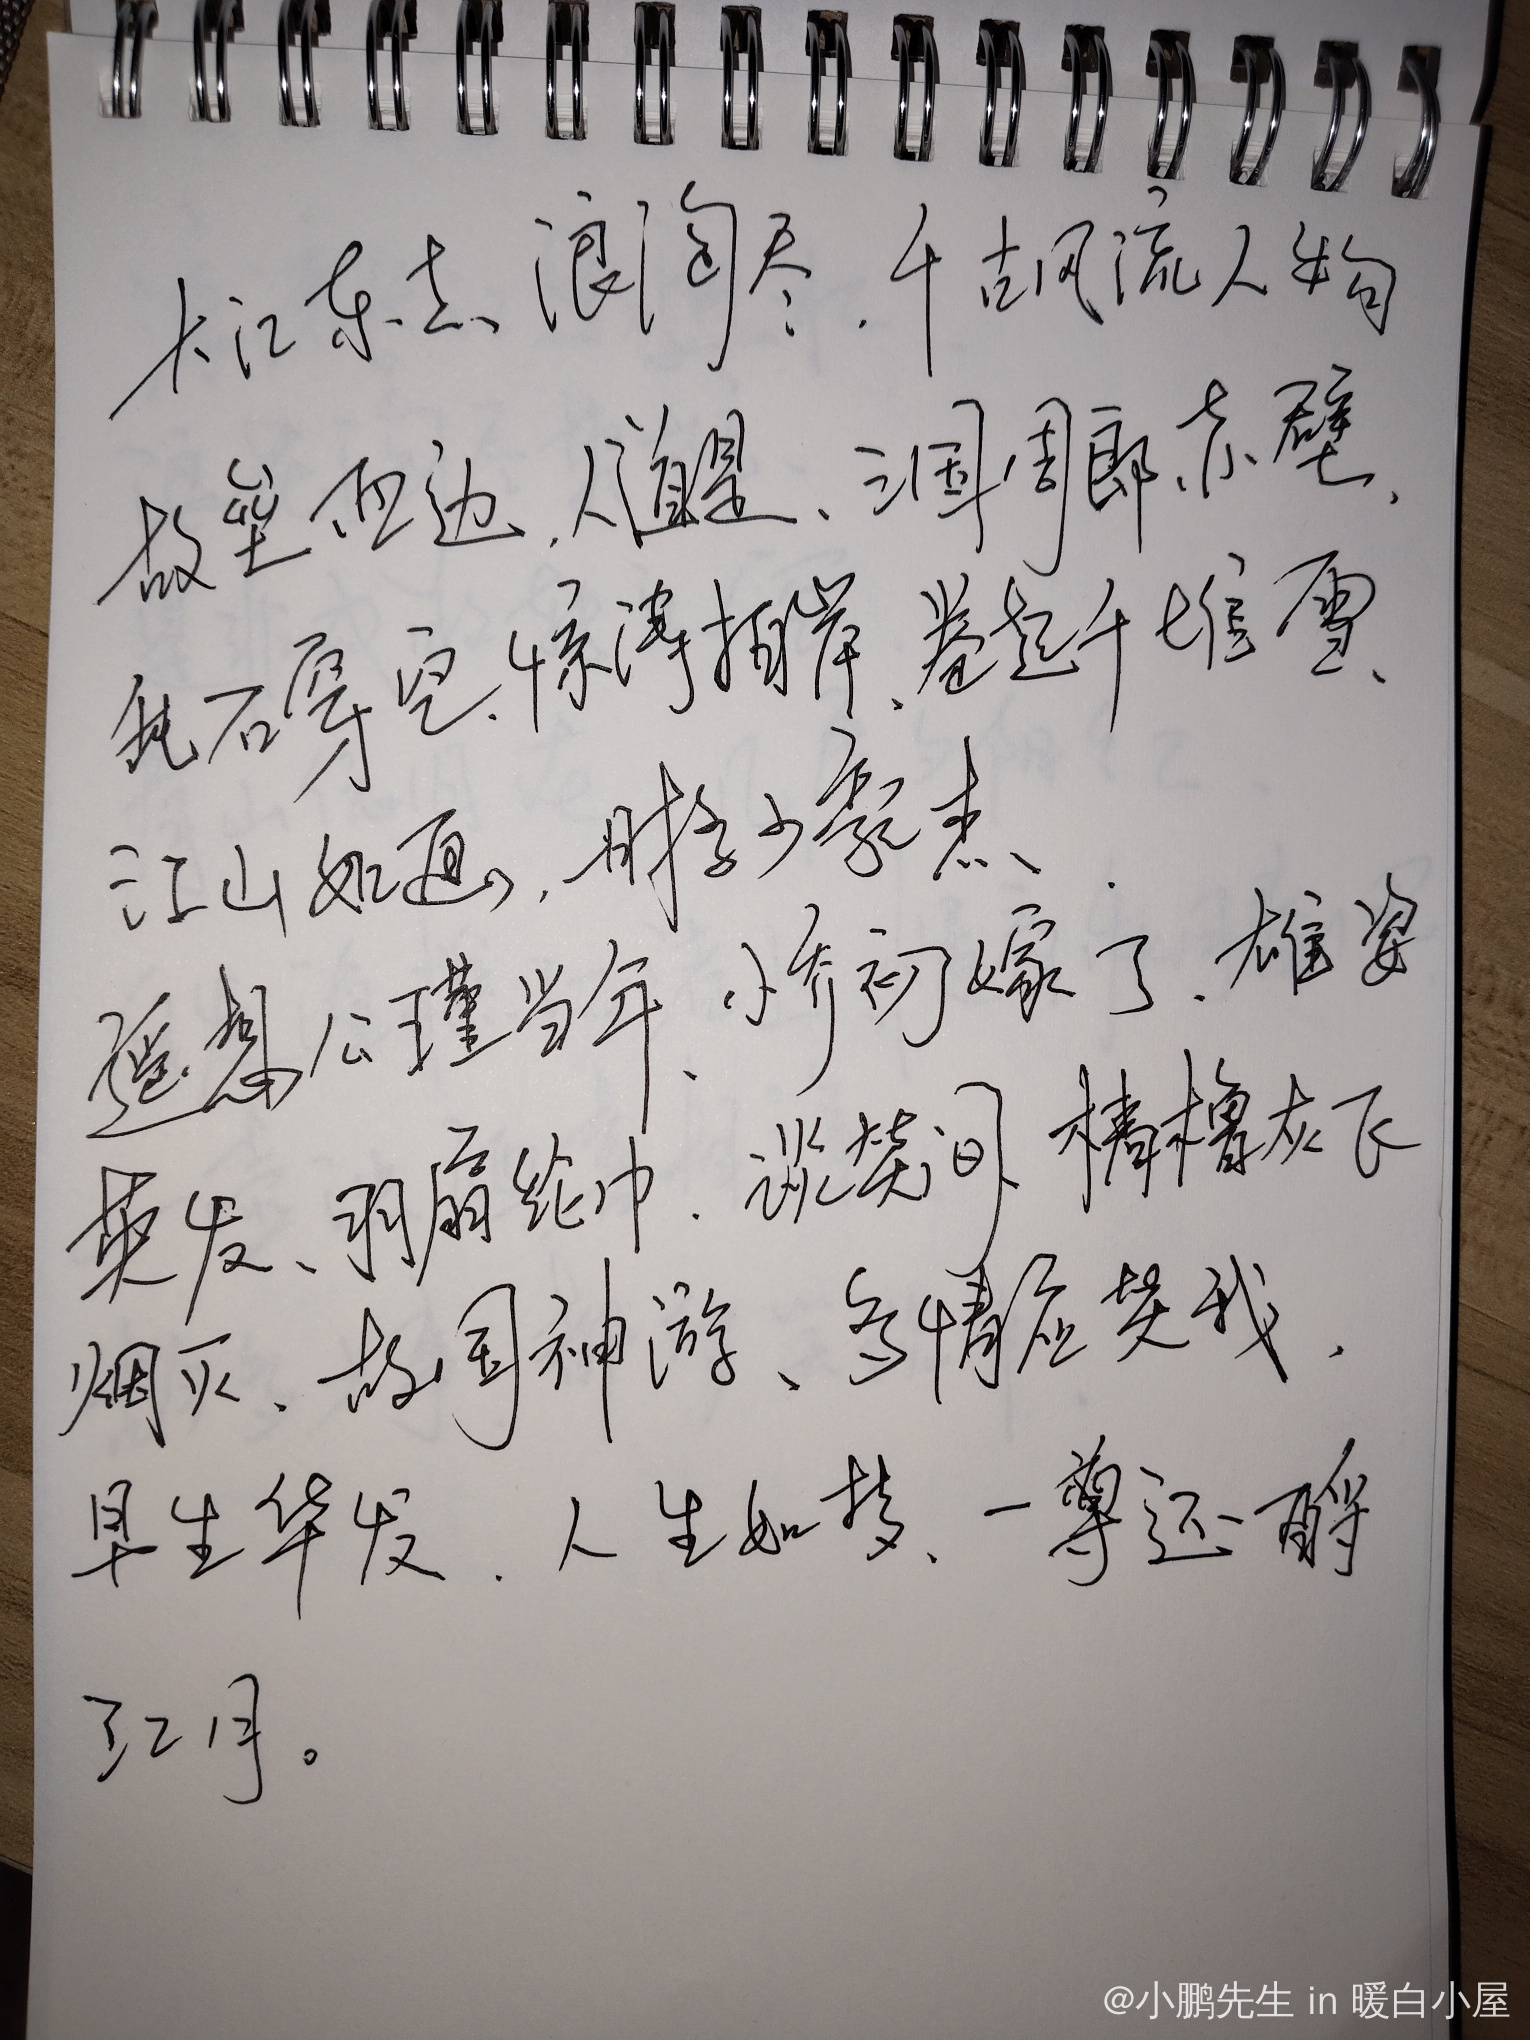 大江东去、浪淘尽，千古风流人物
故垒西边，人道是、三国周郎赤壁、
乱石穿空、惊涛拍岸、卷起千堆雪、
江山如画，一时多少豪杰、
遥想公瑾当年、小乔初嫁了、雄姿
英发、羽扇纶巾．谈笑间、樯橹灰飞
烟灭、故国神游、多情应笑我．
早生华发．人生如梦、一尊还酹
江月。
@小鹏先生 in 暖白小屋